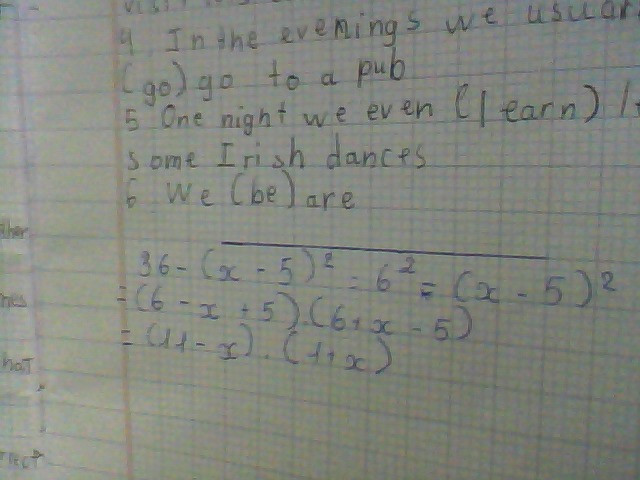 4 In the evenings we usual
(go) go to a pub
5 One night we even (learn)
some Irish dances
6 We (be) are
36 - (x - 5)² = 6² = (x - 5)²
= (6 - x + 5).(6 + x - 5)
= (11 - x) . (1 + x)